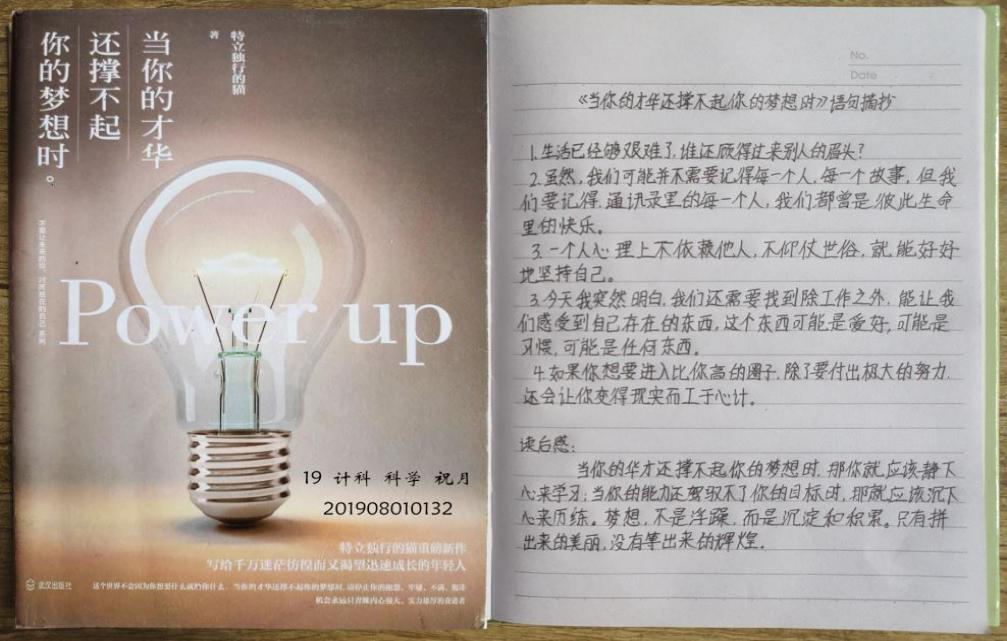 当你的才华
还撑不起
你的梦想时。
特立独行的猫
著
Power up
19 计科 科学 祝月
201908010132
特立独行的猫重磅新作
写给千万迷茫彷徨而又渴望迅速成长的年轻人
武汉出版社
No.
Date
《当你的才华还撑不起你的梦想时》语句摘抄
1.生活已经够艰难了,谁还顾得过来别人的眉头?
2.虽然,我们可能并不需要记得每一个人,每一个故事,但我
们要记得,通讯录里的每一个人,我们都曾是彼此生命
里的快乐。
3.一个人心理上不依赖他人,不仰仗世俗,就能好好
地坚持自己。
3.今天我突然明白,我们还需要找到除工作之外,能让我
们感受到自己存在的东西,这个东西可能是爱好,可能是
习惯,可能是任何东西。
4.如果你想要进入比你高的圈子,除了要付出极大的努力,
还会让你变得现实而工于心计。
读后感:
当你的华才还撑不起你的梦想时,那你就应该静下
心来学习;当你的能力还驾驭不了你的目标时,那就应该沉下
心来历练。梦想,不是浮躁,而是沉淀和积累。只有拼
出来的美丽,没有等出来的辉煌。